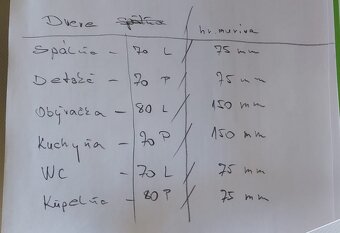 Dvere hr. muriva
Spálňa - 70 L / 75 mm
Detská - 70 P / 75 mm
Obývačka - 80 L / 150 mm
Kuchyňa - 70 P / 150 mm
WC - 70 L / 75 mm
Kúpelňa - 80 P / 75 mm